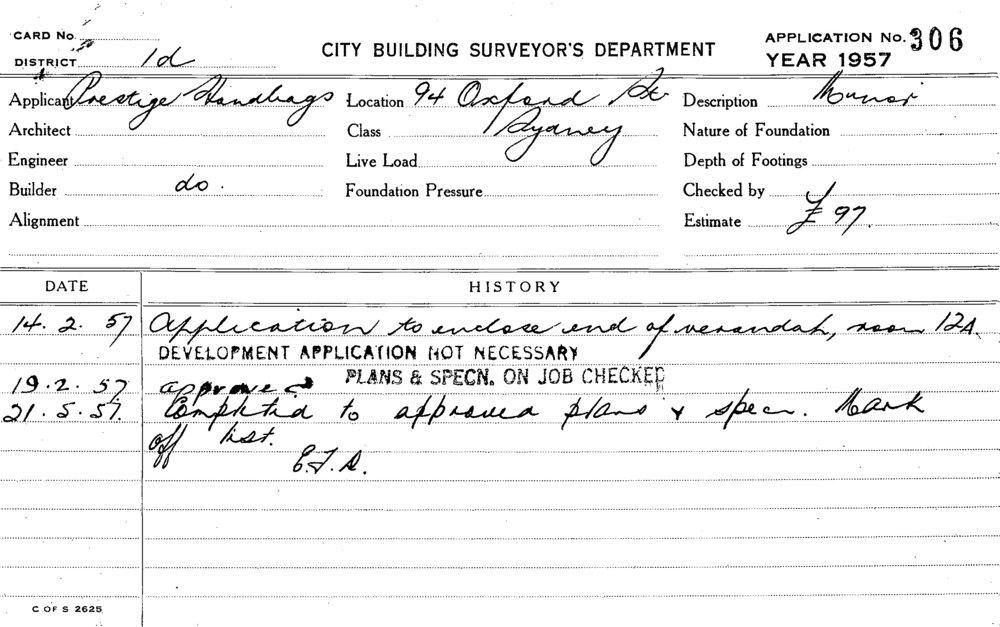 CARD No.
DISTRICT 1d
CITY BUILDING SURVEYOR'S DEPARTMENT
APPLICATION No. 306
YEAR 1957
Applicant Prestige Handbags Location 94 Oxford St Description Minor
Architect Class Sydney Nature of Foundation
Engineer Live Load Depth of Footings
Builder do. Foundation Pressure Checked by
Alignment Estimate £ 97.
DATE HISTORY
14. 2. 57 Application to enclose end of verandah, room 12A.
DEVELOPMENT APPLICATION NOT NECESSARY
PLANS & SPECN. ON JOB CHECKED
19. 2. 57. approved
21. 5. 57. Completed to approved plans & specn. Mark
off list.
C OF S 2625